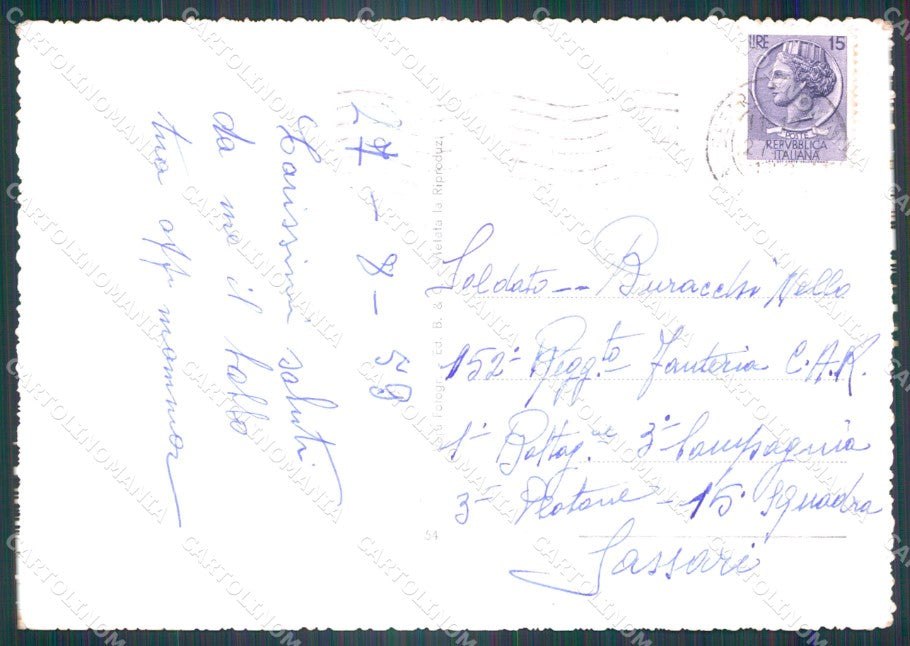 27 - 8 - 58
Carissimi saluti
da me il babbo
tua aff. mamma
LIRE 15
POSTE
REPVBBLICA
ITALIANA
Ed. B. &
Vietata la Riproduz.
54
Soldato -- Buracchi Nello
152° Regg.to Fanteria C.A.R.
1° Battag.ne 3° Compagnia
3° Plotone - 15° Squadra
Sassari
CARTOLINOMANIA